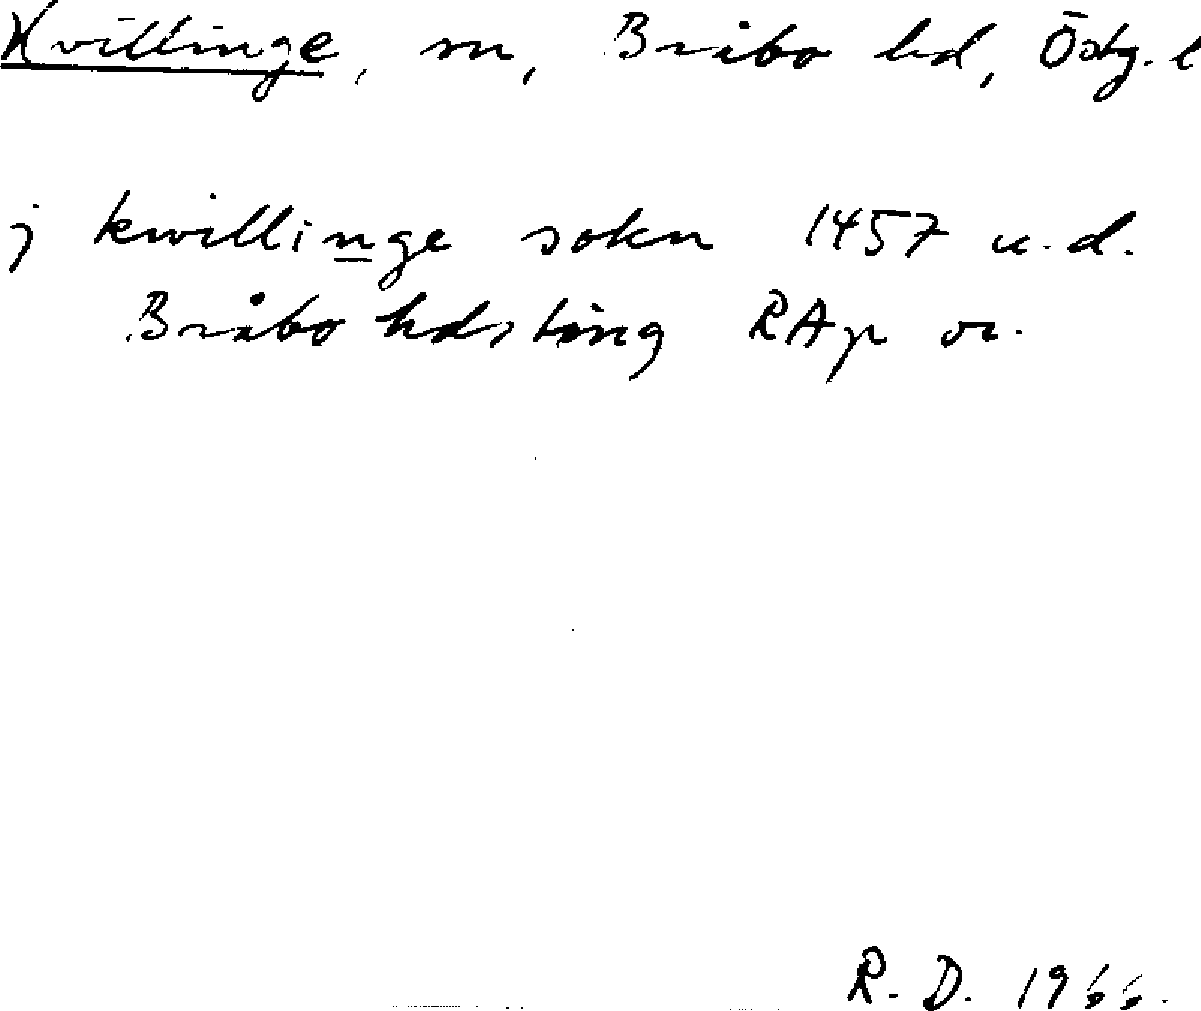 Kvillinge, sn, Bråbo hd, Östg. l
j kwillinge sokn 1457 u.d.
Bråbo hds ting RAp or.
R. D. 1966.